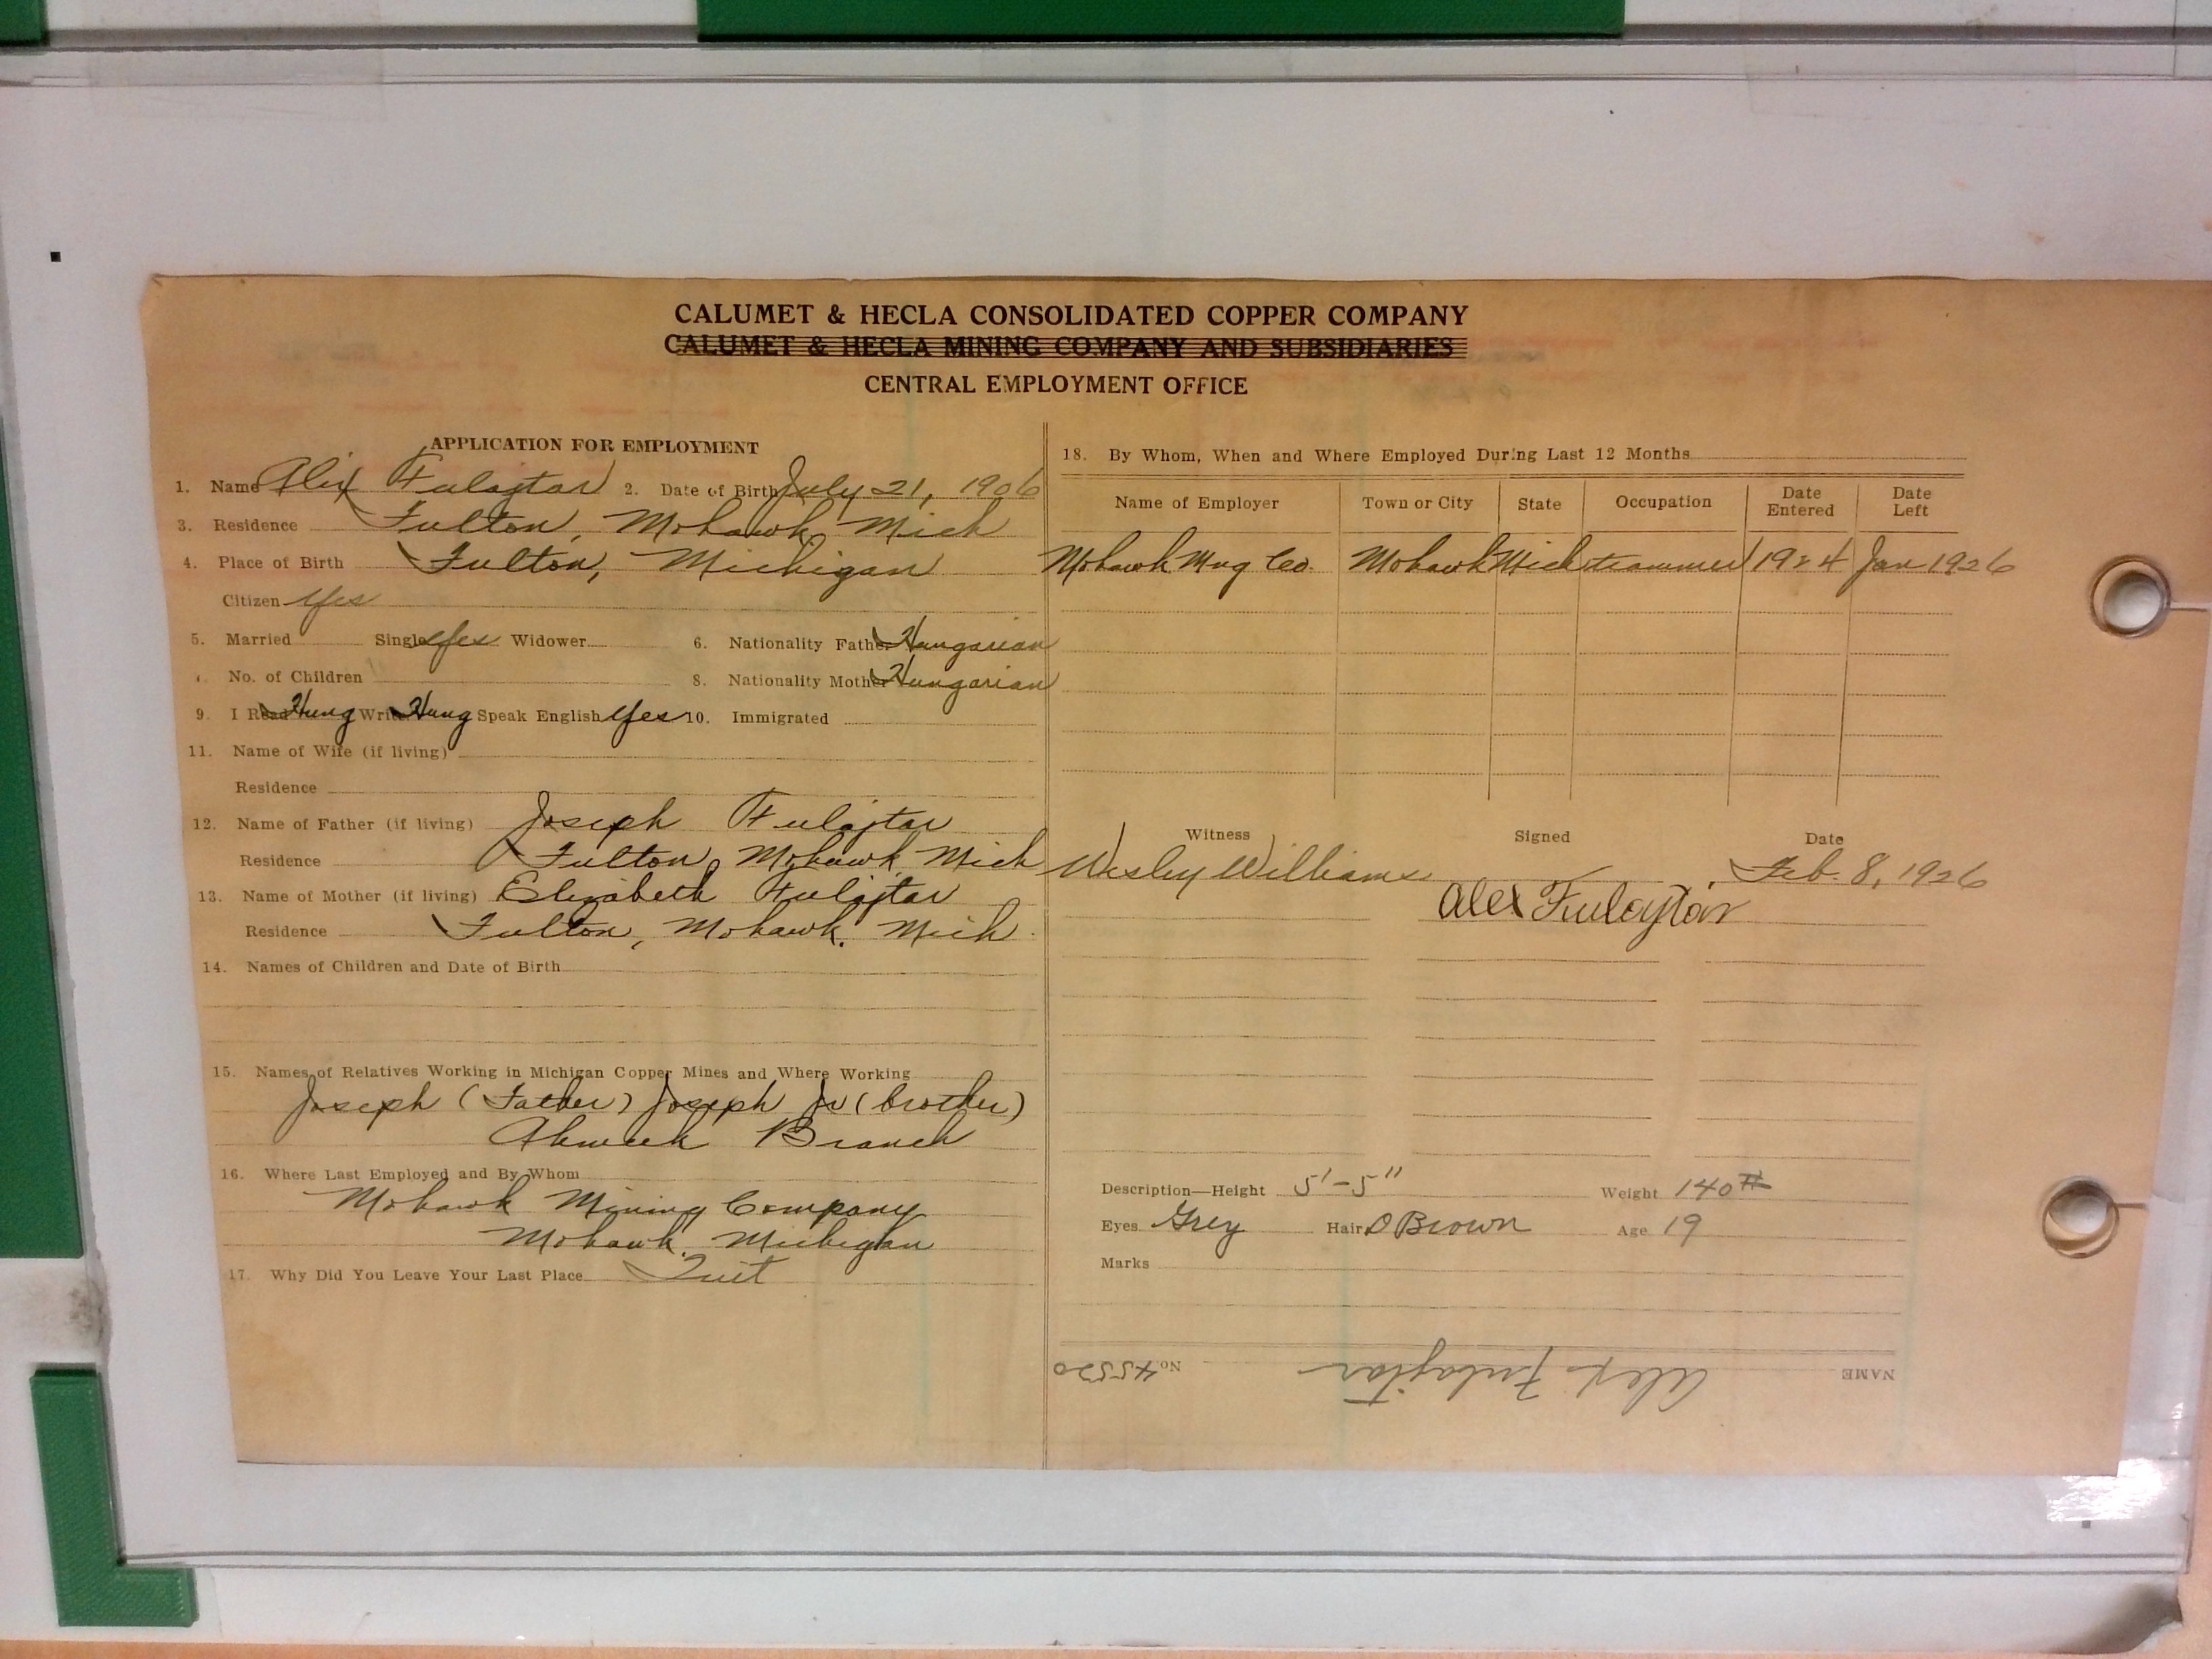 CALUMET & HECLA CONSOLIDATED COPPER COMPANY
CALUMET & HECLA MINING COMPANY AND SUBSIDIARIES
CENTRAL EMPLOYMENT OFFICE
APPLICATION FOR EMPLOYMENT
1. Name Alex Fulajtar 2. Date of Birth July 21, 1906
3. Residence Fulton, Mohawk, Mich
4. Place of Birth Fulton, Michigan
Citizen Yes
5. Married Single Yes Widower 6. Nationality Father Hungarian
No. of Children 8. Nationality Mother Hungarian
9. I Read Hung Write Hung Speak English Yes 10. Immigrated
11. Name of Wife (if living)
Residence
12. Name of Father (if living) Joseph Fulajtar
Residence Fulton, Mohawk Mich
13. Name of Mother (if living) Elizabeth Fulajtar
Residence Fulton, Mohawk, Mich
14. Names of Children and Date of Birth
15. Names of Relatives Working in Michigan Copper Mines and Where Working
Joseph (Father) Joseph Jr (brother)
Ahmeek Branch
16. Where Last Employed and By Whom
Mohawk Mining Company
Mohawk, Michigan
17. Why Did You Leave Your Last Place Quit
18. By Whom, When and Where Employed During Last 12 Months
Name of Employer Town or City State Occupation Date Entered Date Left
Mohawk Mng Co. Mohawk Mich trammer 1924 Jan 1926
Witness Signed Date
Wesley Williams Feb. 8, 1926
Alex Fulajtar
Description—Height 5'-5" Weight 140#
Eyes Grey Hair D Brown Age 19
Marks
NAME Alex Fulajtar No. 45520